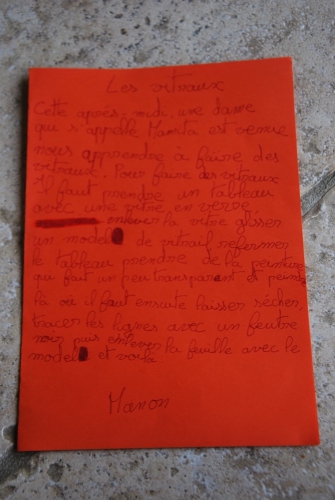 Les vitraux
Cette après-midi, une dame
qui s'appelle Mamita est venue
nous apprendre à faire des
vitraux. Pour faire des vitraux
Il faut prendre un tableau
avec une vitre en verre
enlever la vitre glisser
un model de vitrail refermer
le tableau prendre de la peinture
qui fait un peu transparent et peindre
là où il faut ensuite laisser sécher
tracer les lignes avec un feutre
noir puis enlever la feuille avec le
model et voilà
Manon